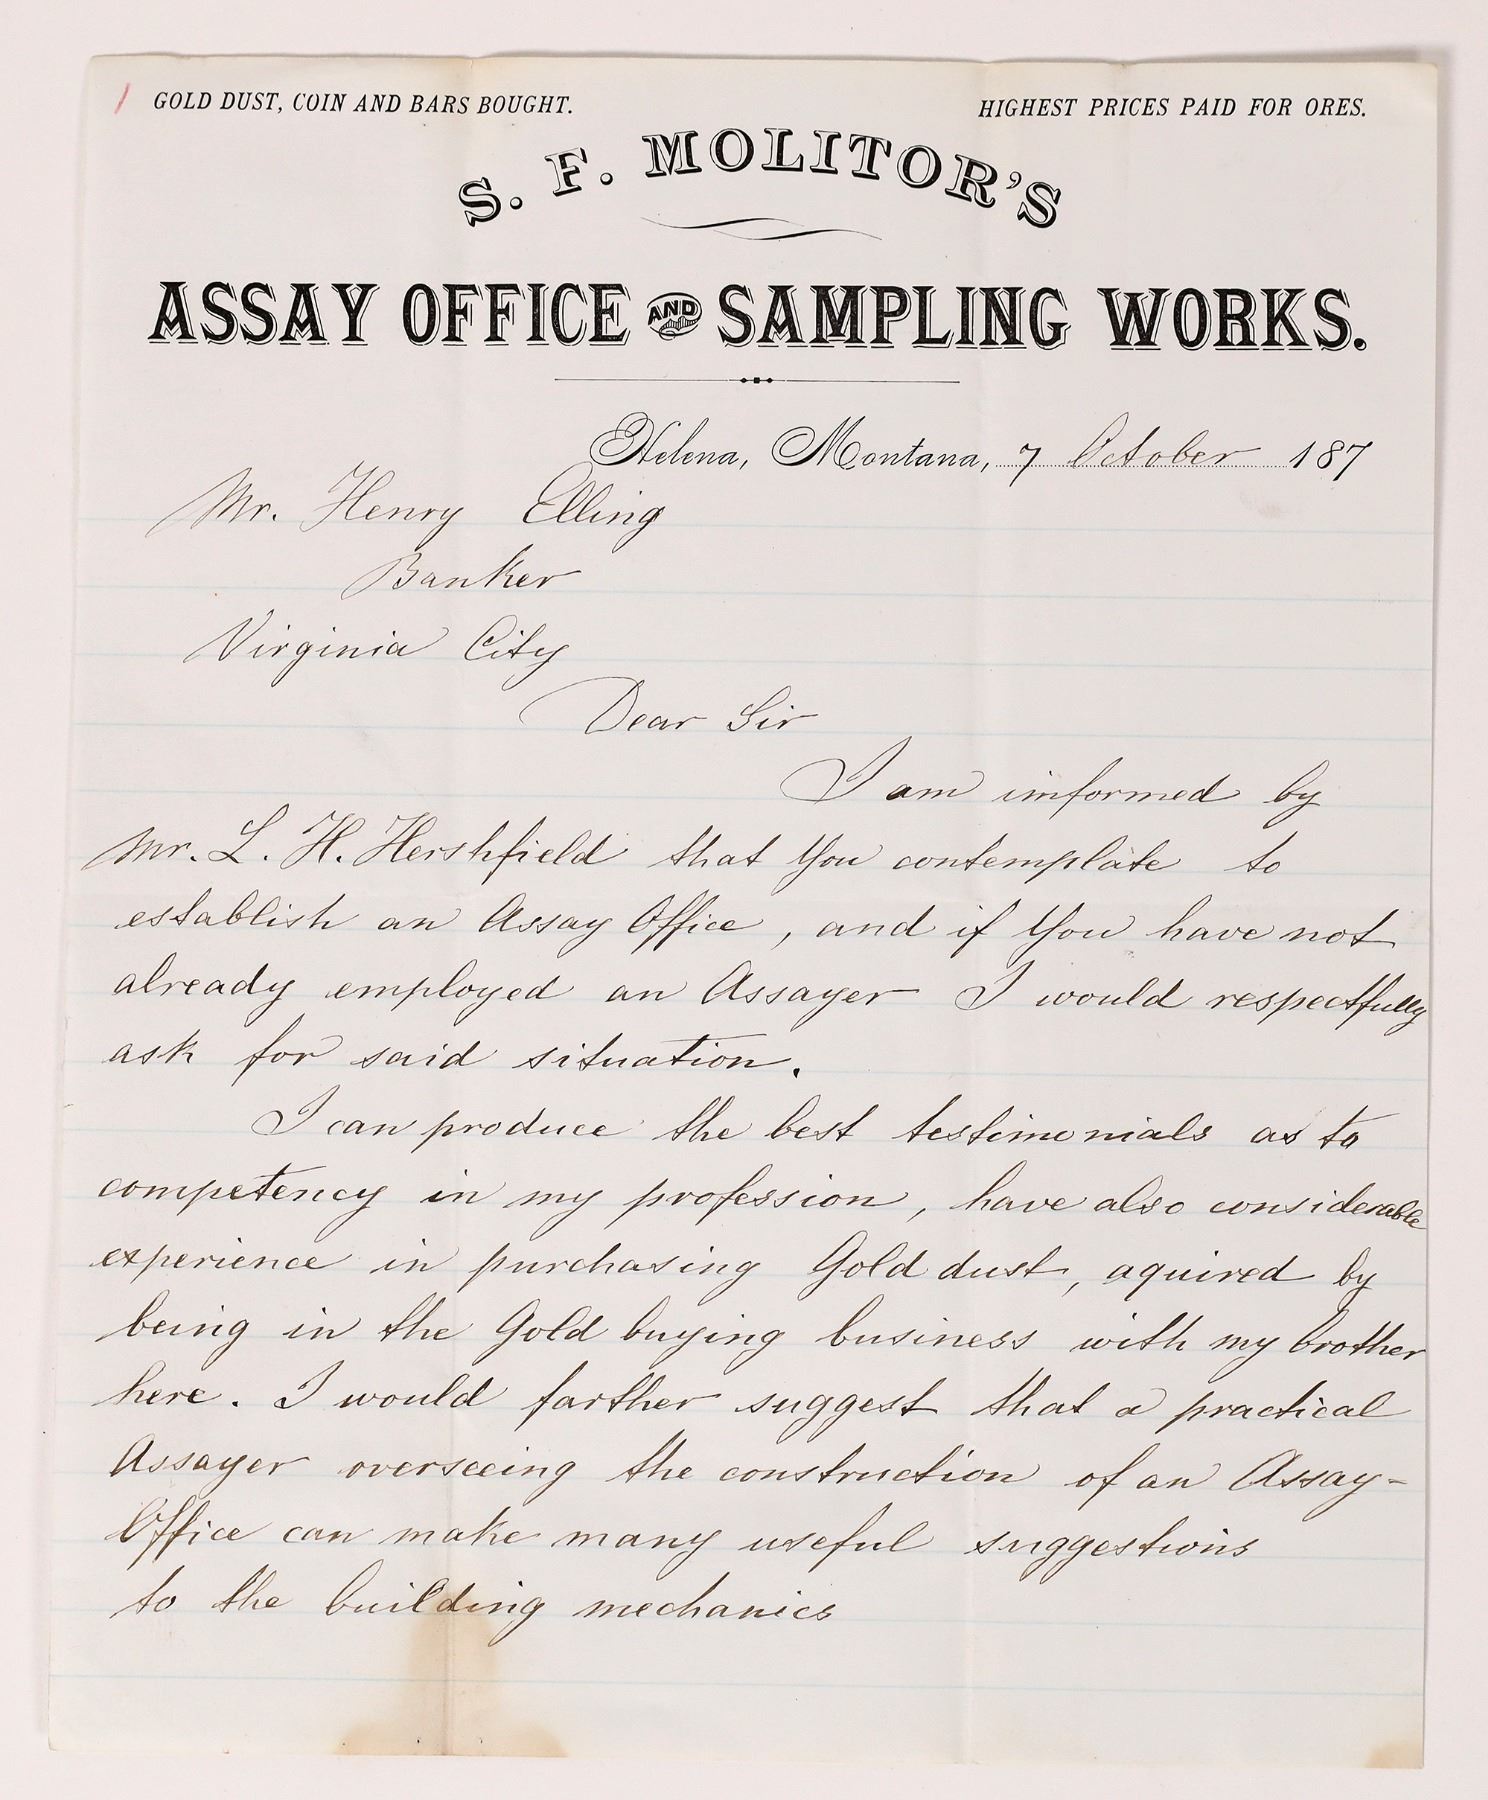 GOLD DUST, COIN AND BARS BOUGHT.
HIGHEST PRICES PAID FOR ORES.
S. F. MOLITOR'S
ASSAY OFFICE AND SAMPLING WORKS.
Helena, Montana, 7 October 187
Mr. Henry Elling
Banker
Virginia City
Dear Sir
I am informed by
Mr. L. H. Hershfield that You contemplate to
establish an Assay Office, and if You have not
already employed an Assayer I would respectfully
ask for said situation.
I can produce the best testimonials as to
competency in my profession, have also considerable
experience in purchasing Gold dust, aquired by
being in the Gold buying business with my brother
here. I would farther suggest that a practical
Assayer overseeing the construction of an Assay-
Office can make many useful suggestions
to the building mechanics